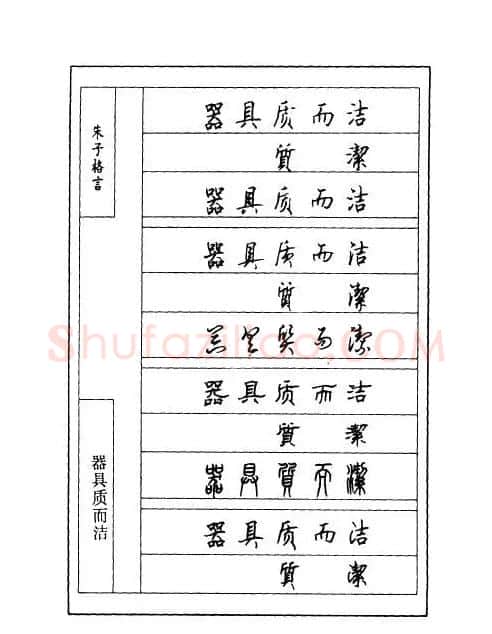 朱子格言
器具质而洁
器具质而洁
質 潔
器具质而洁
器具质而洁
質 潔
器具質而潔
器具质而洁
質 潔
器具質而潔
器具质而洁
質 潔
Shufaziliao.COM